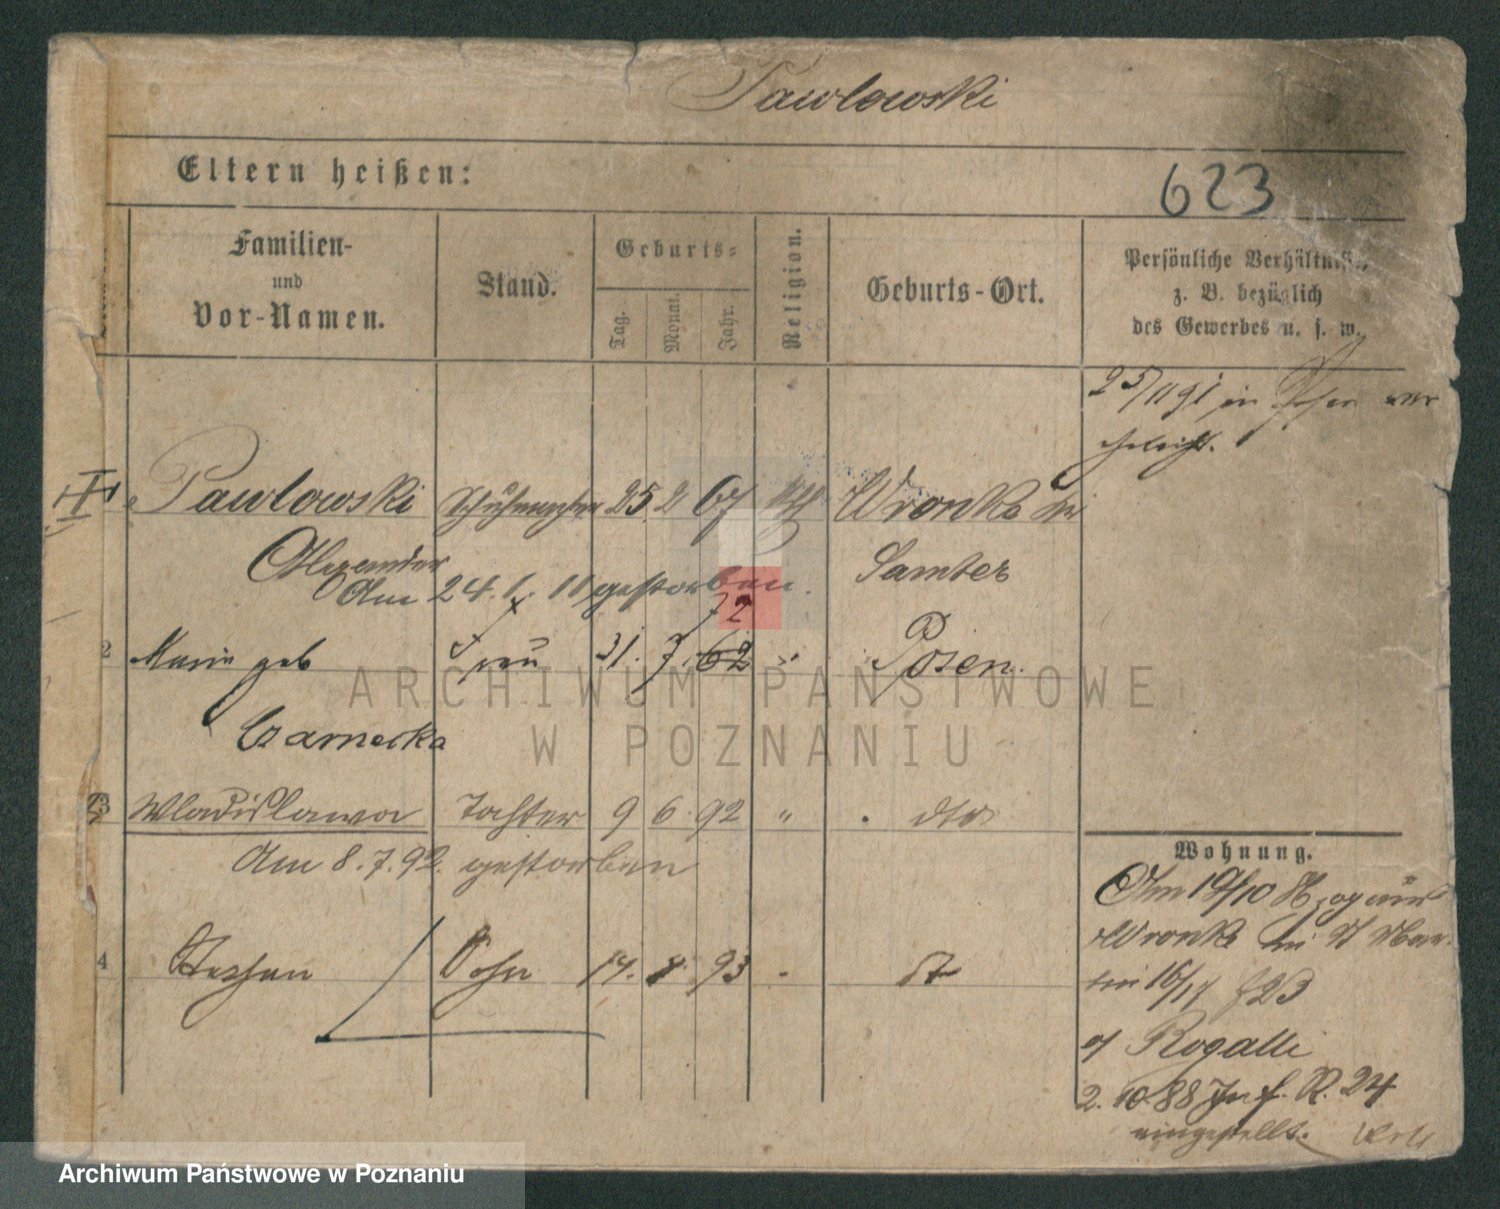 Pawlowski
Eltern heißen:
623
Familien-
und
Vor-Namen.
Stand.
Geburts-
Tag.
Monat.
Jahr.
Religion.
Geburts-Ort.
Persönliche Verhältnisse,
z. B. bezüglich
des Gewerbes u. s. w.
25/11 91 in Posen ver
ehelicht.
Pawlowski 25 2 67 kth Wronke
Alexander Samter
Am 24. 1. 11 gestorben.
72
2 Marie geb Frau 31. 7. 62 " Posen.
Czarnecka
3 Wladislawa Tochter 9 6 92 " dto
Am 8. 7. 92. gestorben
4 Stephan Sohn 14. 93 dt
Wohnung.
Am 19/10 zog aus
Wronke St Mar-
tin 16/17
Rogalli
2. 10 88 Inf. R. 24
eingestellt.
ARCHIWUM PAŃSTWOWE
W POZNANIU
Archiwum Państwowe w Poznaniu